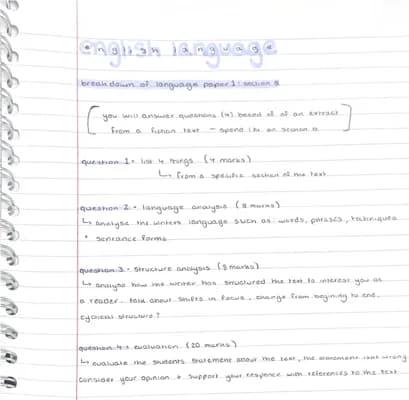 english language
breakdown of language paper 1: section a
you will answer questions (4) based of of an extract
from a fiction text - spend 1hr on section a
question 1 - list 4 things (4 marks)
↳ from a specific section of the text
question 2 - language analysis (8 marks)
↳ analyse the writers language such as: words, phrases, techniques
+ sentance forms
question 3 - structure analysis (8 marks)
↳ analyse how the writer has structured the text to interest you as
a reader. talk about shifts in focus, change from begining to end,
cyclical structure?
question 4 - evaluation (20 marks)
↳ evaluate the students statement about the text, the statement isnt wrong
consider your opinion + support your response with references to the text